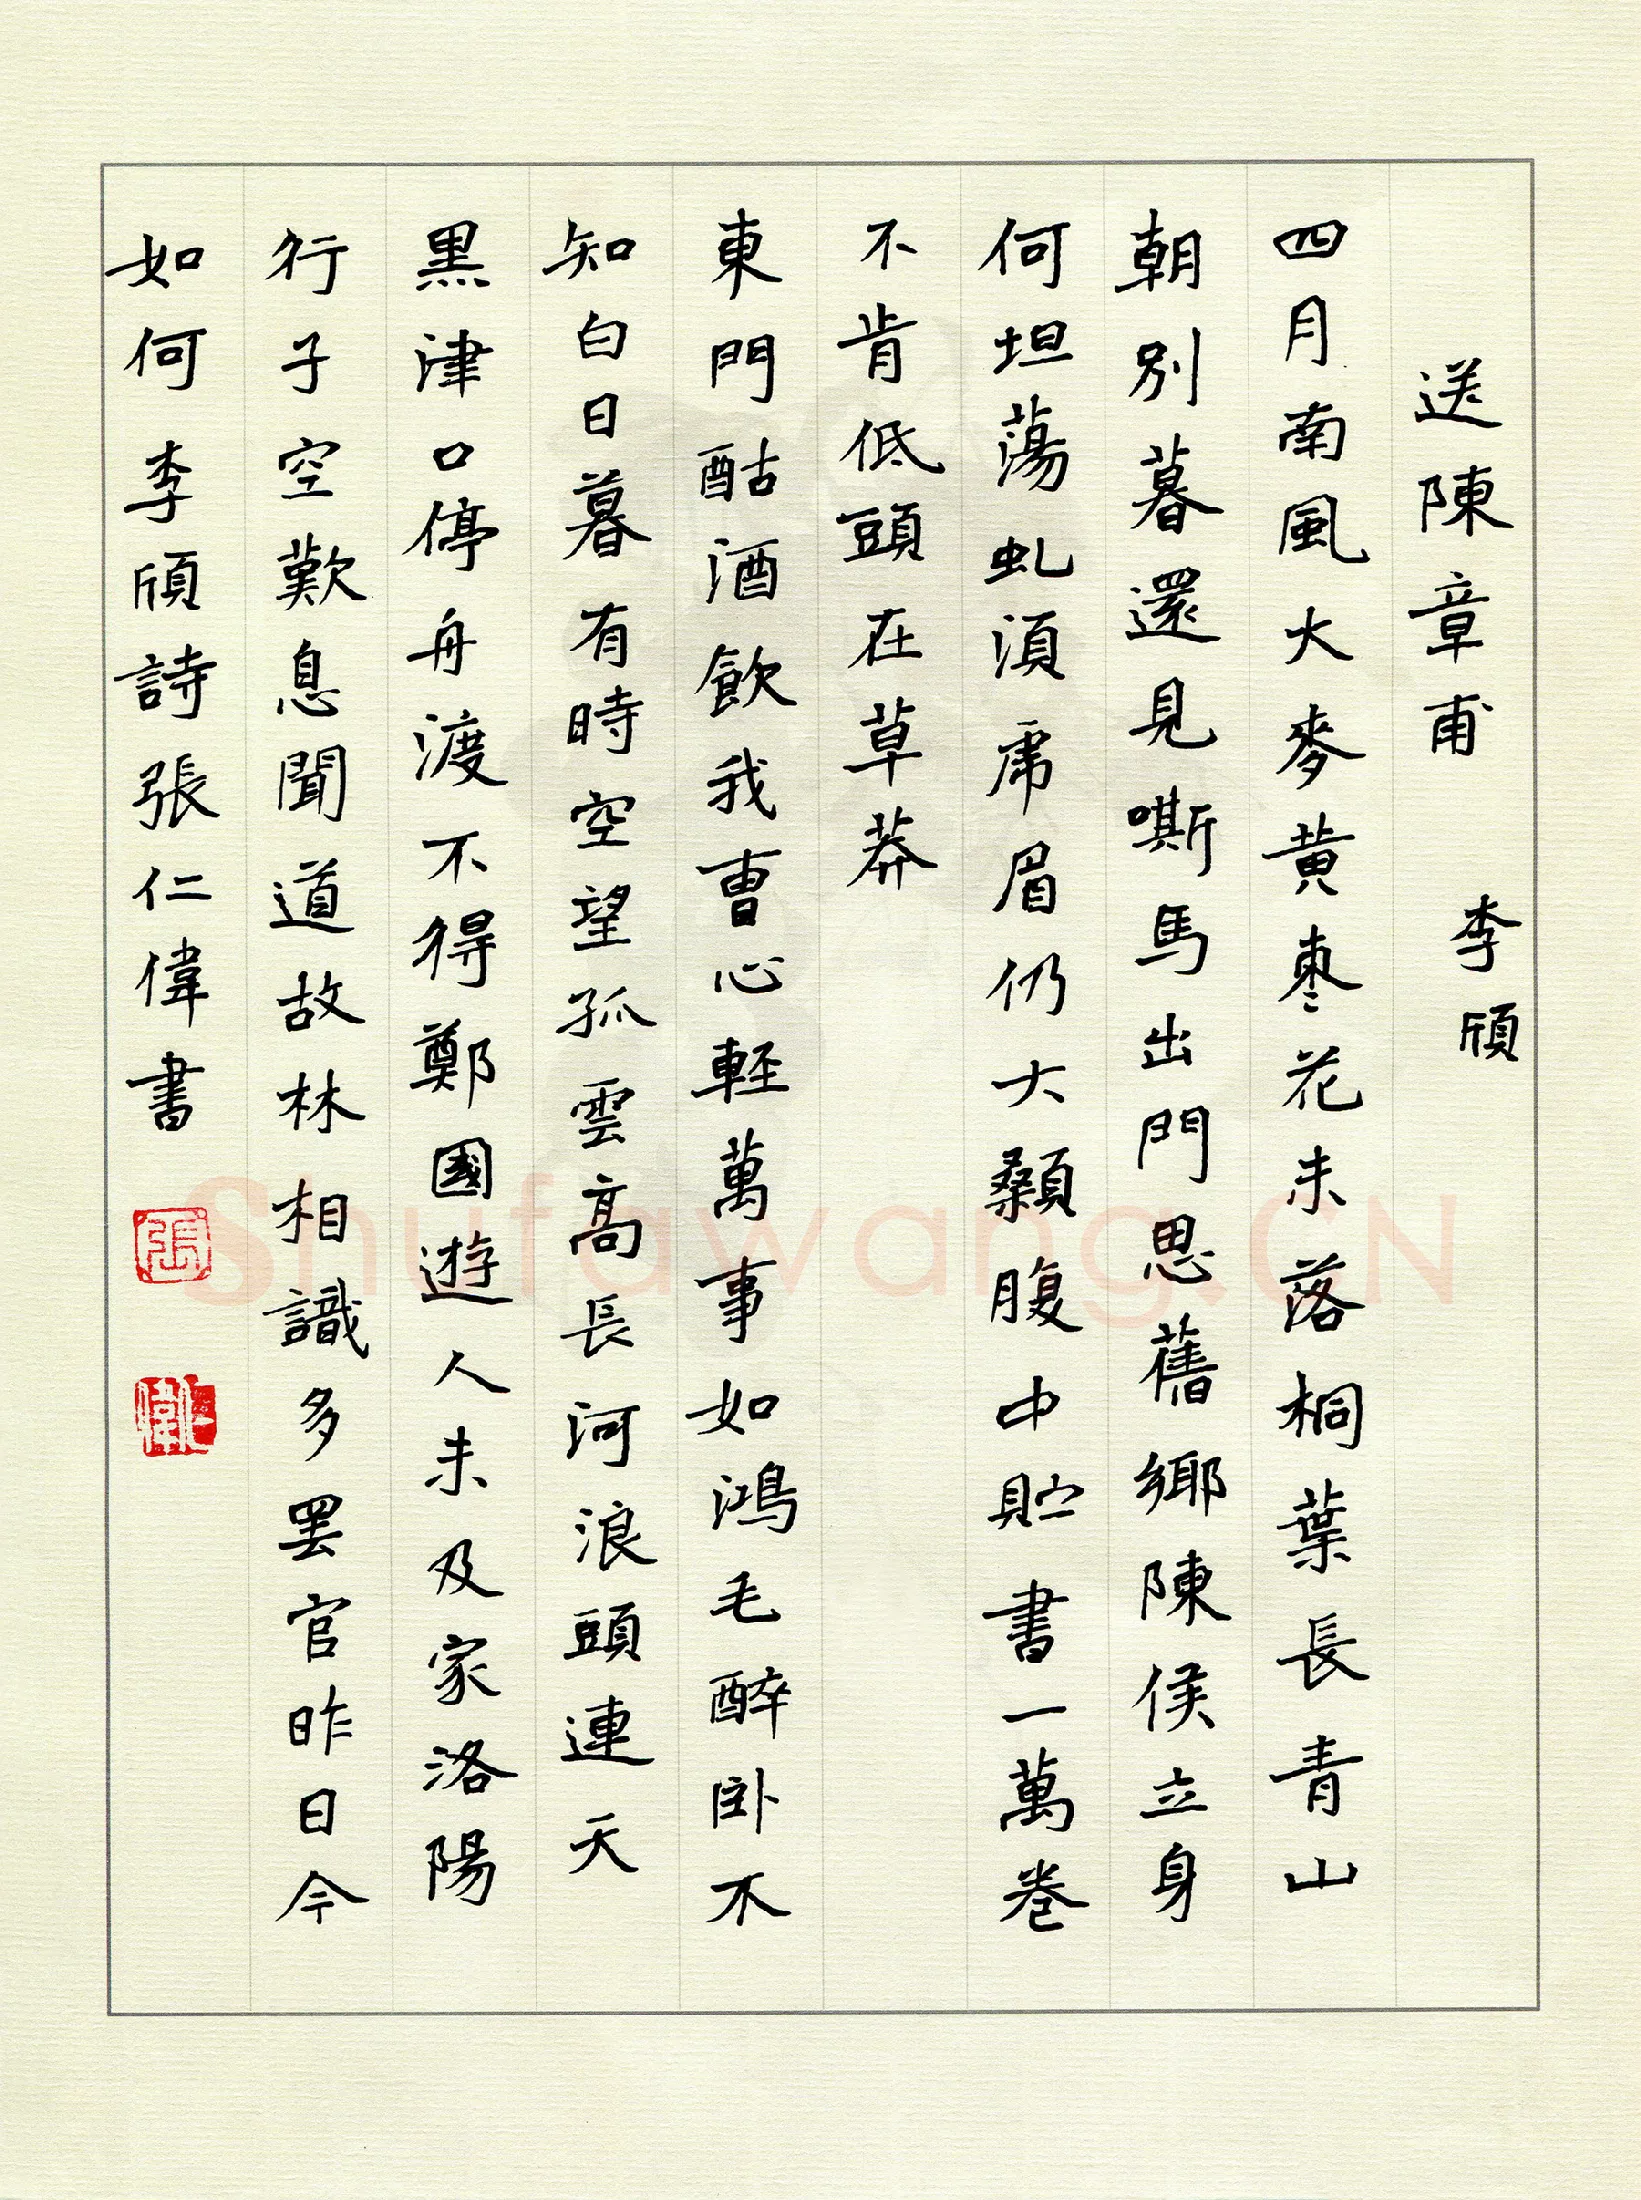 送陳章甫 李頎
四月南風大麥黄棗花未落桐葉長青山
朝別暮還見嘶馬出門思舊鄉陳侯立身
何坦蕩虬須虎眉仍大顙腹中貯書一萬卷
不肯低頭在草莽
東門酤酒飲我曹心輕萬事如鴻毛醉卧不
知白日暮有時空望孤雲高長河浪頭連天
黑津口停舟渡不得鄭國遊人未及家洛陽
行子空歎息聞道故林相識多罷官昨日今
如何李頎詩張仁偉書
張
偉
Shufawang.CN